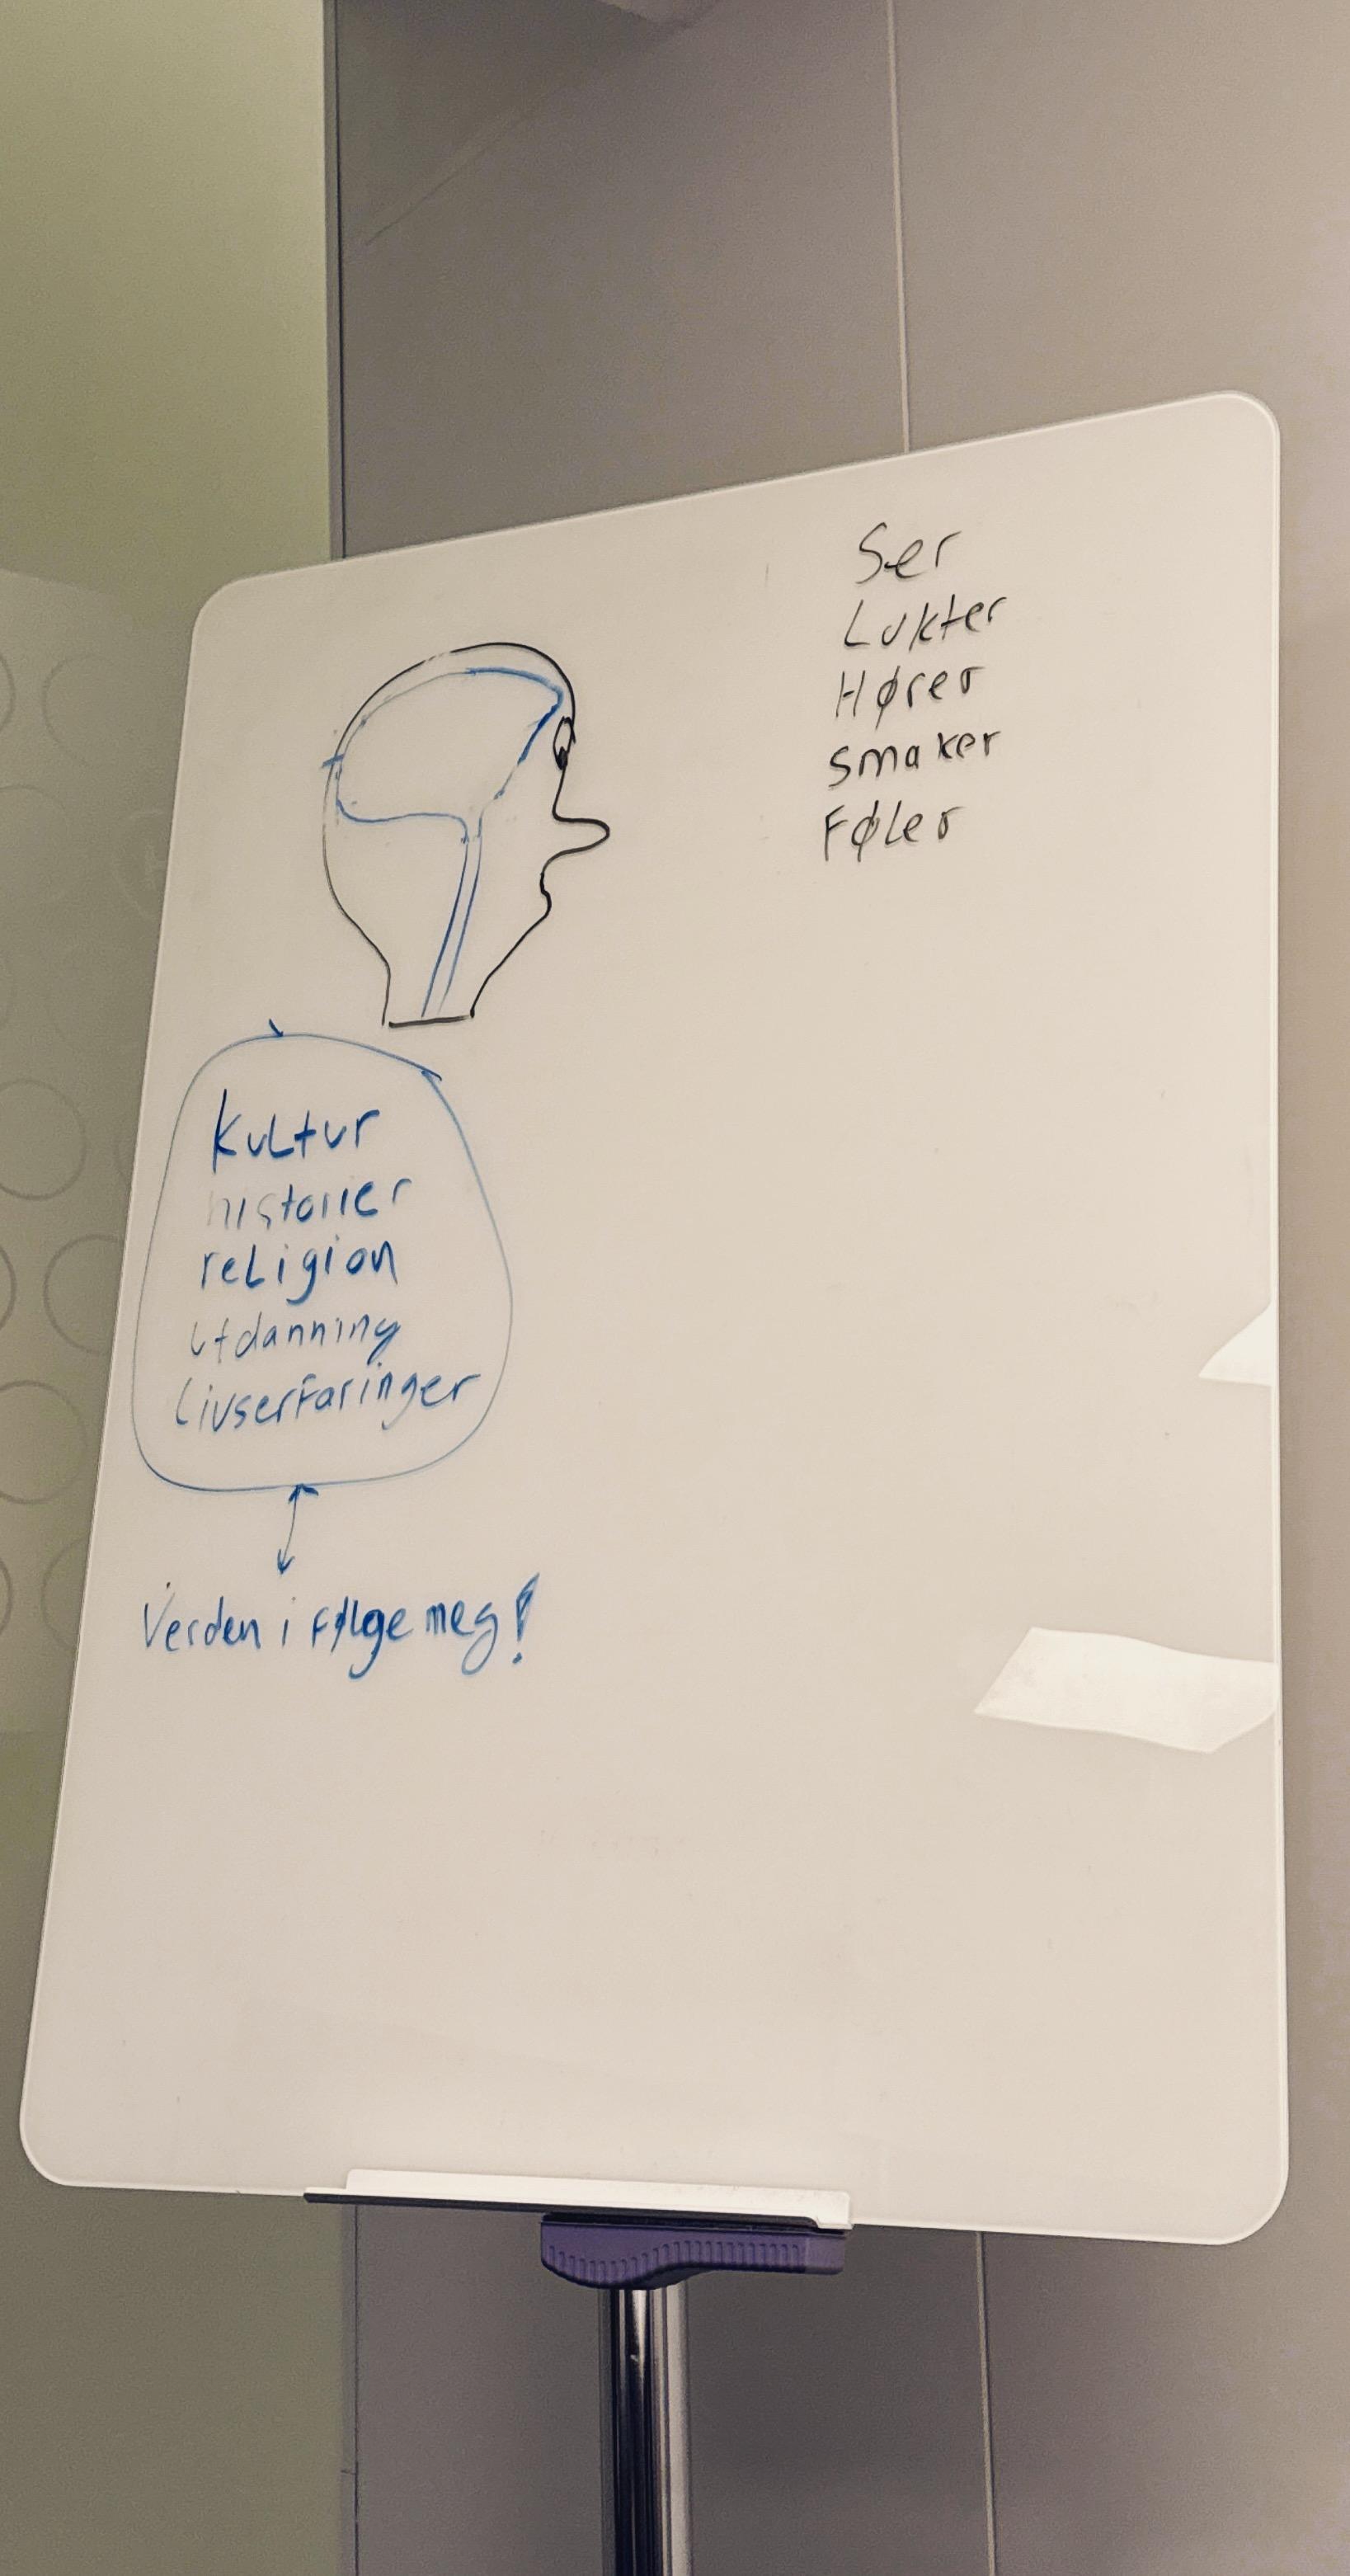 Ser
Lukter
Hører
smaker
Føler
Kultur
historier
religion
utdanning
Livserfaringer
Verden i følge meg!